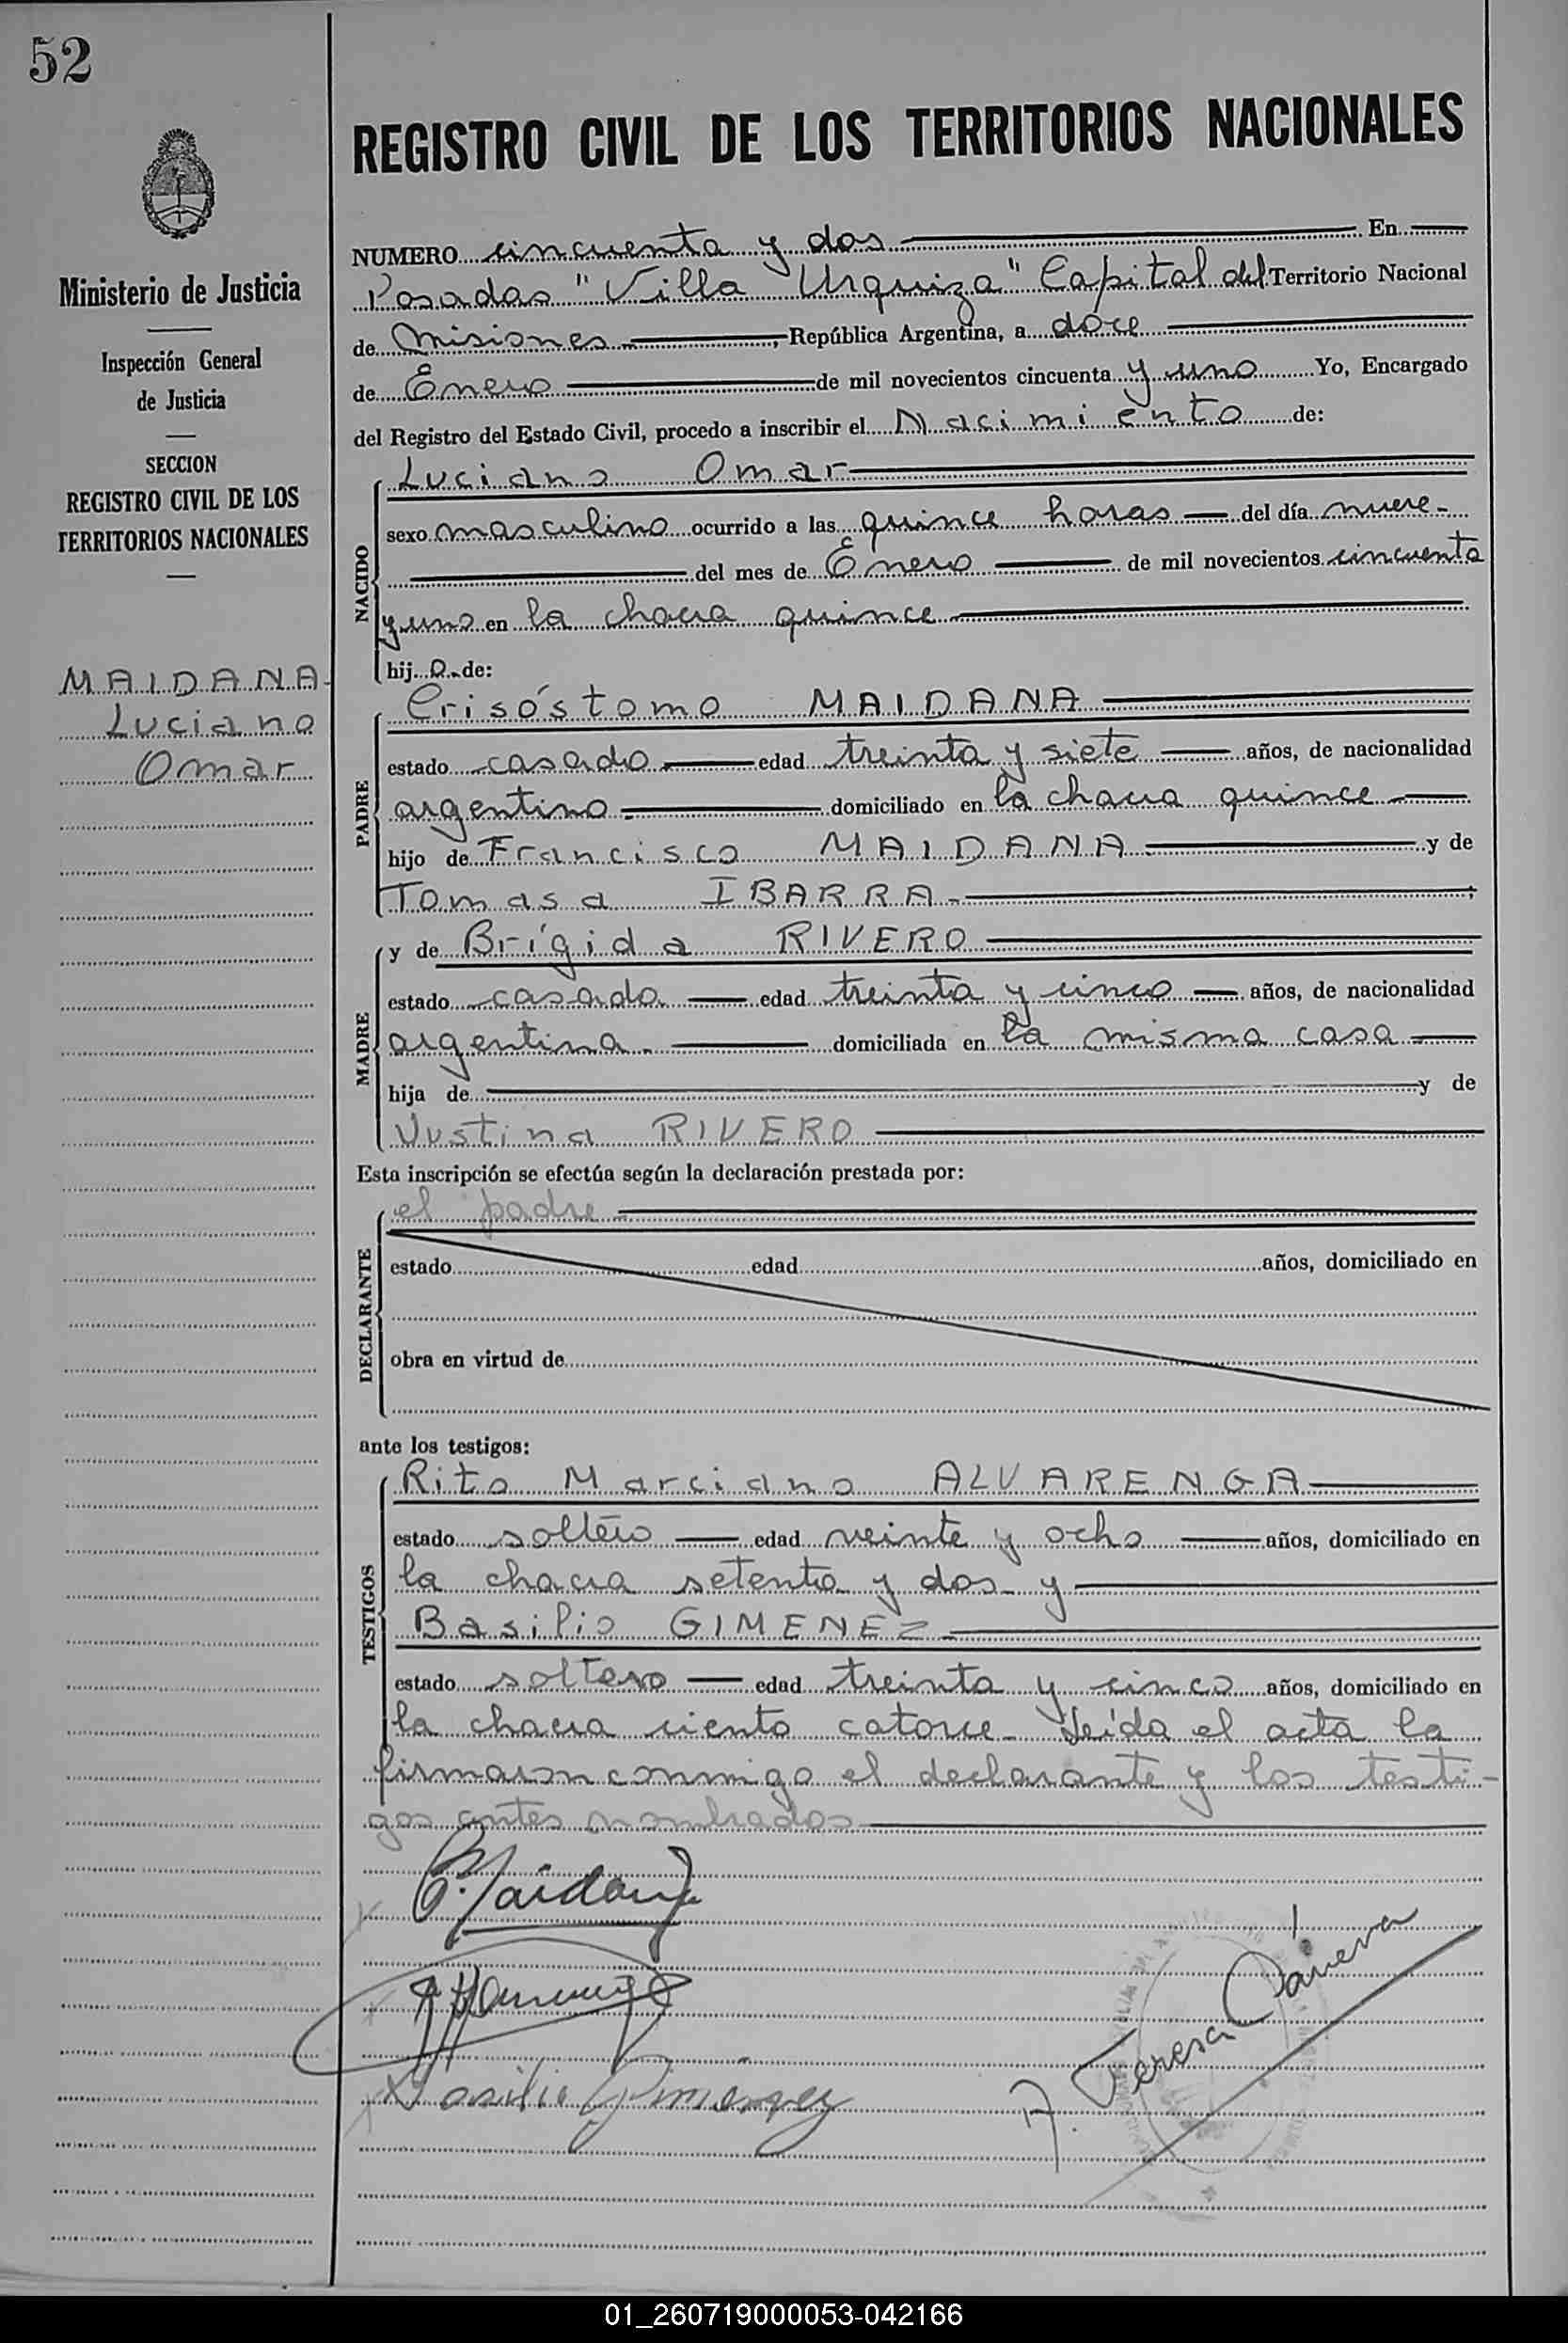 52
Ministerio de Justicia
Inspección General
de Justicia
SECCION
REGISTRO CIVIL DE LOS
TERRITORIOS NACIONALES
MAIDANA
Luciano
Omar
REGISTRO CIVIL DE LOS TERRITORIOS NACIONALES
NUMERO cincuenta y dos En
Posadas "Villa Urquiza" Capital del Territorio Nacional
de Misiones, República Argentina, a doce
de Enero de mil novecientos cincuenta y uno Yo, Encargado
del Registro del Estado Civil, procedo a inscribir el Nacimiento de:
NACIDO
Luciano Omar
sexo masculino ocurrido a las quince horas del día nueve
del mes de Enero de mil novecientos cincuenta
y uno en la chacra quince
hijo de:
PADRE
Crisóstomo MAIDANA
estado casado edad treinta y siete años, de nacionalidad
argentino domiciliado en la chacra quince
hijo de Francisco MAIDANA y de
Tomasa IBARRA
MADRE
y de Brígida RIVERO
estado casada edad treinta y cinco años, de nacionalidad
argentina domiciliada en la misma casa
hija de y de
Justina RIVERO
Esta inscripción se efectúa según la declaración prestada por:
DECLARANTE
el padre
estado edad años, domiciliado en
obra en virtud de
ante los testigos:
TESTIGOS
Rito Marciano ALVARENGA
estado soltero edad veinte y ocho años, domiciliado en
la chacra setenta y dos y
Basilio GIMENEZ
estado soltero edad treinta y cinco años, domiciliado en
la chacra ciento catorce. Leída el acta la
firmaron conmigo el declarante y los testi-
gos antes nombrados
C. Maidana
Basilio Gimenez
A. Teresa
01_260719000053-042166